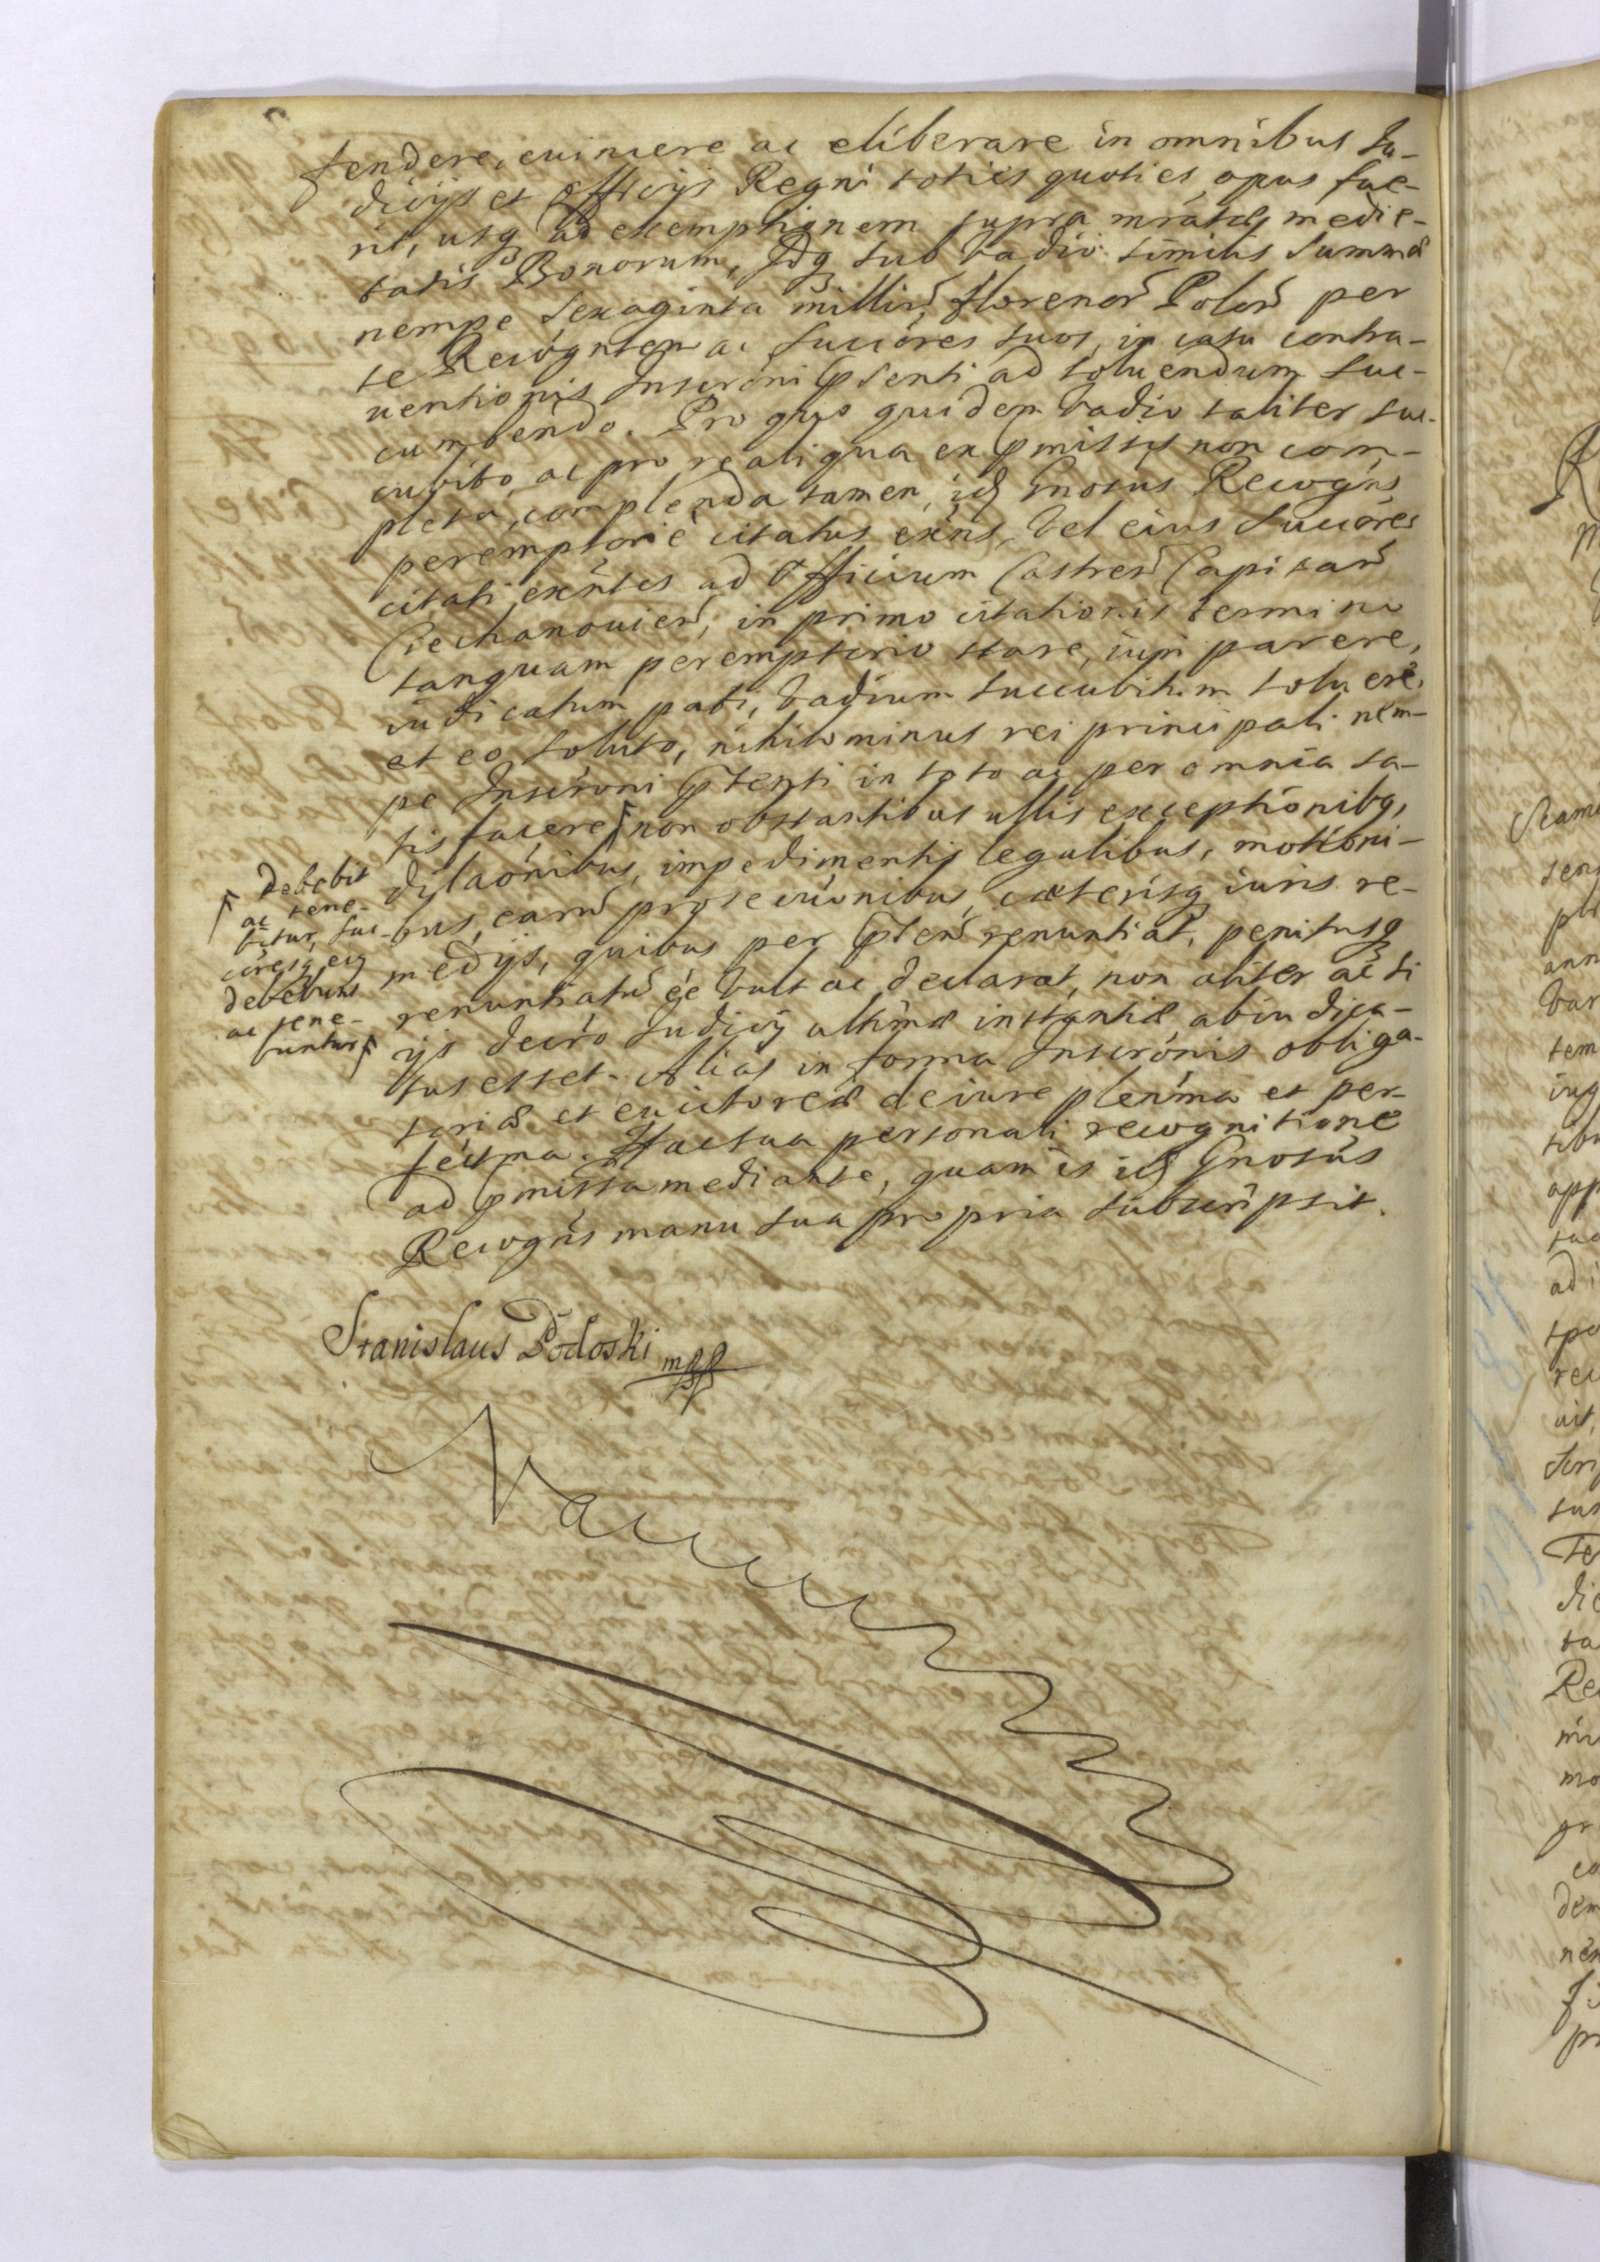 fendere, euincere ac eliberare in omnibus Iu-
dicijs et Officijs Regni toties quoties opus fue-
rit, usq ad exemptionem supra mratae medie-
tatis Bonorum, Idq sub vadio similis Summae
nempe sexaginta milliu florenor Polor per
se Recogntem ac succores suos, in casu contra-
uentionis Inscroni pnsenti ad soluendum suc-
cumbendo. Pro quo quidem vadio taliter suc-
cubito, ac pro re aliqua ex pmissis non com-
pleta, complenda tamen, id Gnosus Recogns
peremptorie citatus exns, vel eius succores
citati exntes ad Officium Castren Capitan
Ciechanouien, in primo citationis termino
tanquam peremptorio stare, iuri parere,
iudicatum pati, vadium succubitum soluere,
et eo soluto, nihilominus rei principali nem-
pe Inscroni pnsenti in toto ac per omnia sa-
tis facere non obstantibus ullis exceptionibq,
dilaonibus, impedimentis legalibus, motioni-
bus, earu prosecuonibus, caeterisq iuris re-
medijs, quibus per pnsen renuntiat, penitusq
renuntiatu ee vult ac declarat, non aliter ac si
ijs decro Iudicij ultimae instantiae abiudica-
tus esset. Alias in forma Inscronis obliga-
toriae et euictoreae de iure plenma et per-
fectma. Hac sua personali recognitione
ad pmissa mediante, quam is id Gnosus
Recogns manu sua propria subscripsit.
debebit
ac tene-
bitur, suc-
coresq eiq
debebunt
ac tene-
buntur
Stanislaus Podoski mpp